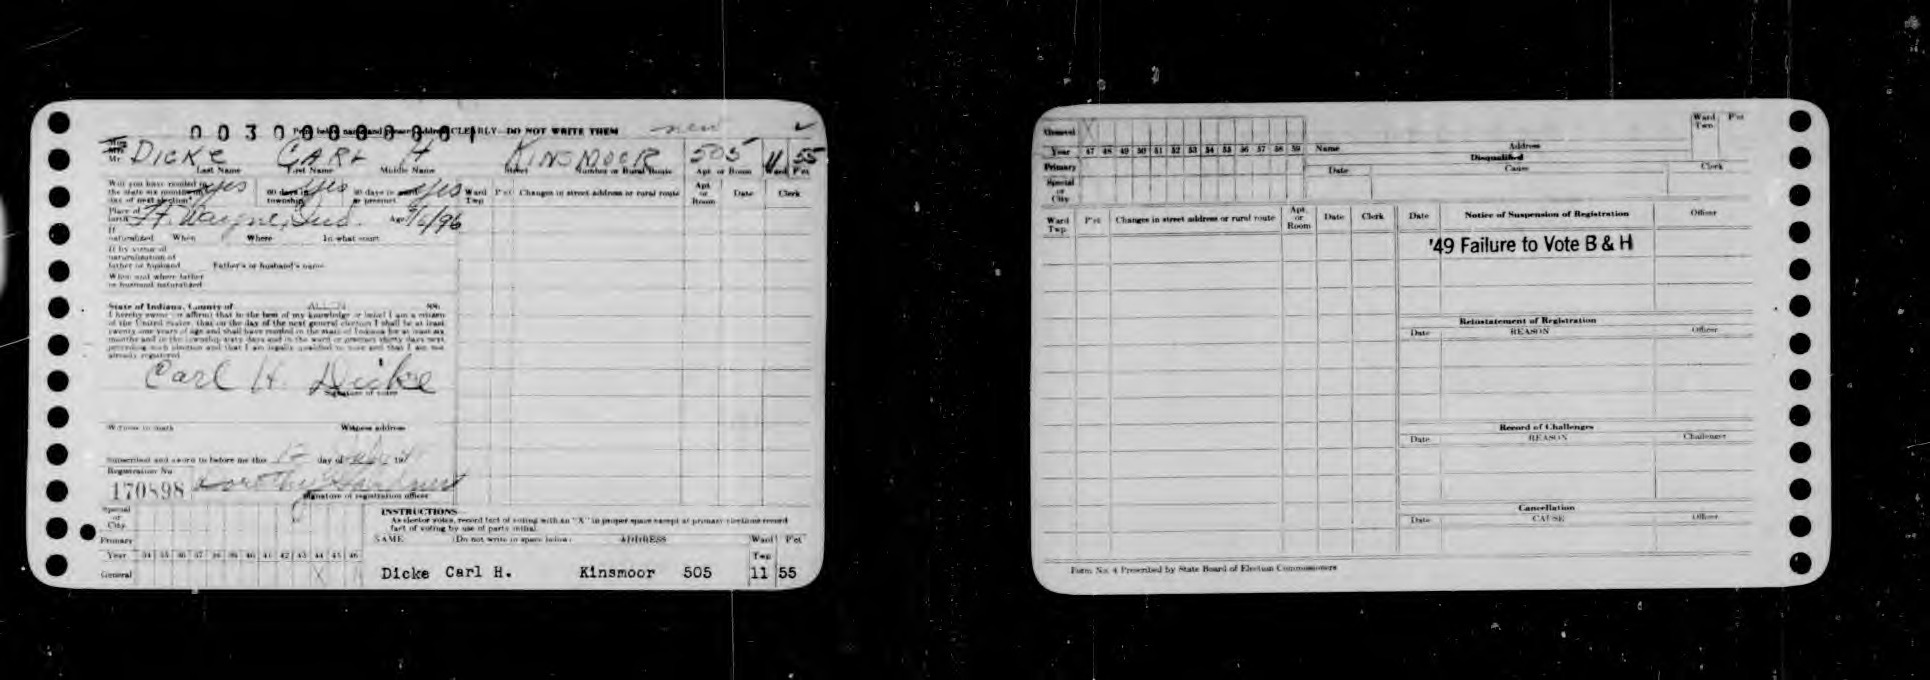 0030000001
Print below name and present address CLEARLY—DO NOT WRITE THEM new
Mr. DICKE CARL H KINSMOOR 505 11 55
Last Name First Name Middle Name Street Number or Rural Route Apt. or Room Ward P'ct
Will you have resided in the state six months on day of next election? yes 60 days in township yes 30 days in ward or precinct yes
Ward Twp P'ct Changes in street address or rural route Apt. or Room Date Clerk
Place of birth Ft. Wayne, Ind. Age 9/6/96
If naturalized When Where In what court
If by virtue of naturalization of father or husband Father's or husband's name
When and where father or husband naturalized
State of Indiana, County of ALLEN SS:
I hereby swear or affirm that to the best of my knowledge or belief I am a citizen
of the United States, that on the day of the next general election I shall be at least
twenty-one years of age and shall have resided in the state of Indiana for at least six
months and in the township sixty days and in the ward or precinct thirty days next
preceding such election and that I am legally qualified to vote and that I am not
already registered.
Carl H. Dicke
Signature of voter
Witness to mark Witness address
Subscribed and sworn to before me this day of 19
Registration No.
170898 Dorothy Gardner
Signature of registration officer
Special or City
Primary
Year 34 35 36 37 38 39 40 41 42 43 44 45 46
General X
INSTRUCTIONS
As elector votes, record fact of voting with an "X" in proper space except at primary elections record
fact of voting by use of party initial.
NAME (Do not write in space below) ADDRESS Ward Twp P'ct
Dicke Carl H. Kinsmoor 505 11 55
General X
Year 47 48 49 50 51 52 53 54 55 56 57 58 59 Name Address Ward Twn P'ct
Primary
Special or City
Disqualified
Date Cause Clerk
Ward Twp P'ct Changes in street address or rural route Apt. or Room Date Clerk
Date Notice of Suspension of Registration Officer
'49 Failure to Vote B & H
Reinstatement of Registration
Date REASON Officer
Record of Challenges
Date REASON Challenger
Cancellation
Date CAUSE Officer
Form No. 4 Prescribed by State Board of Election Commissioners